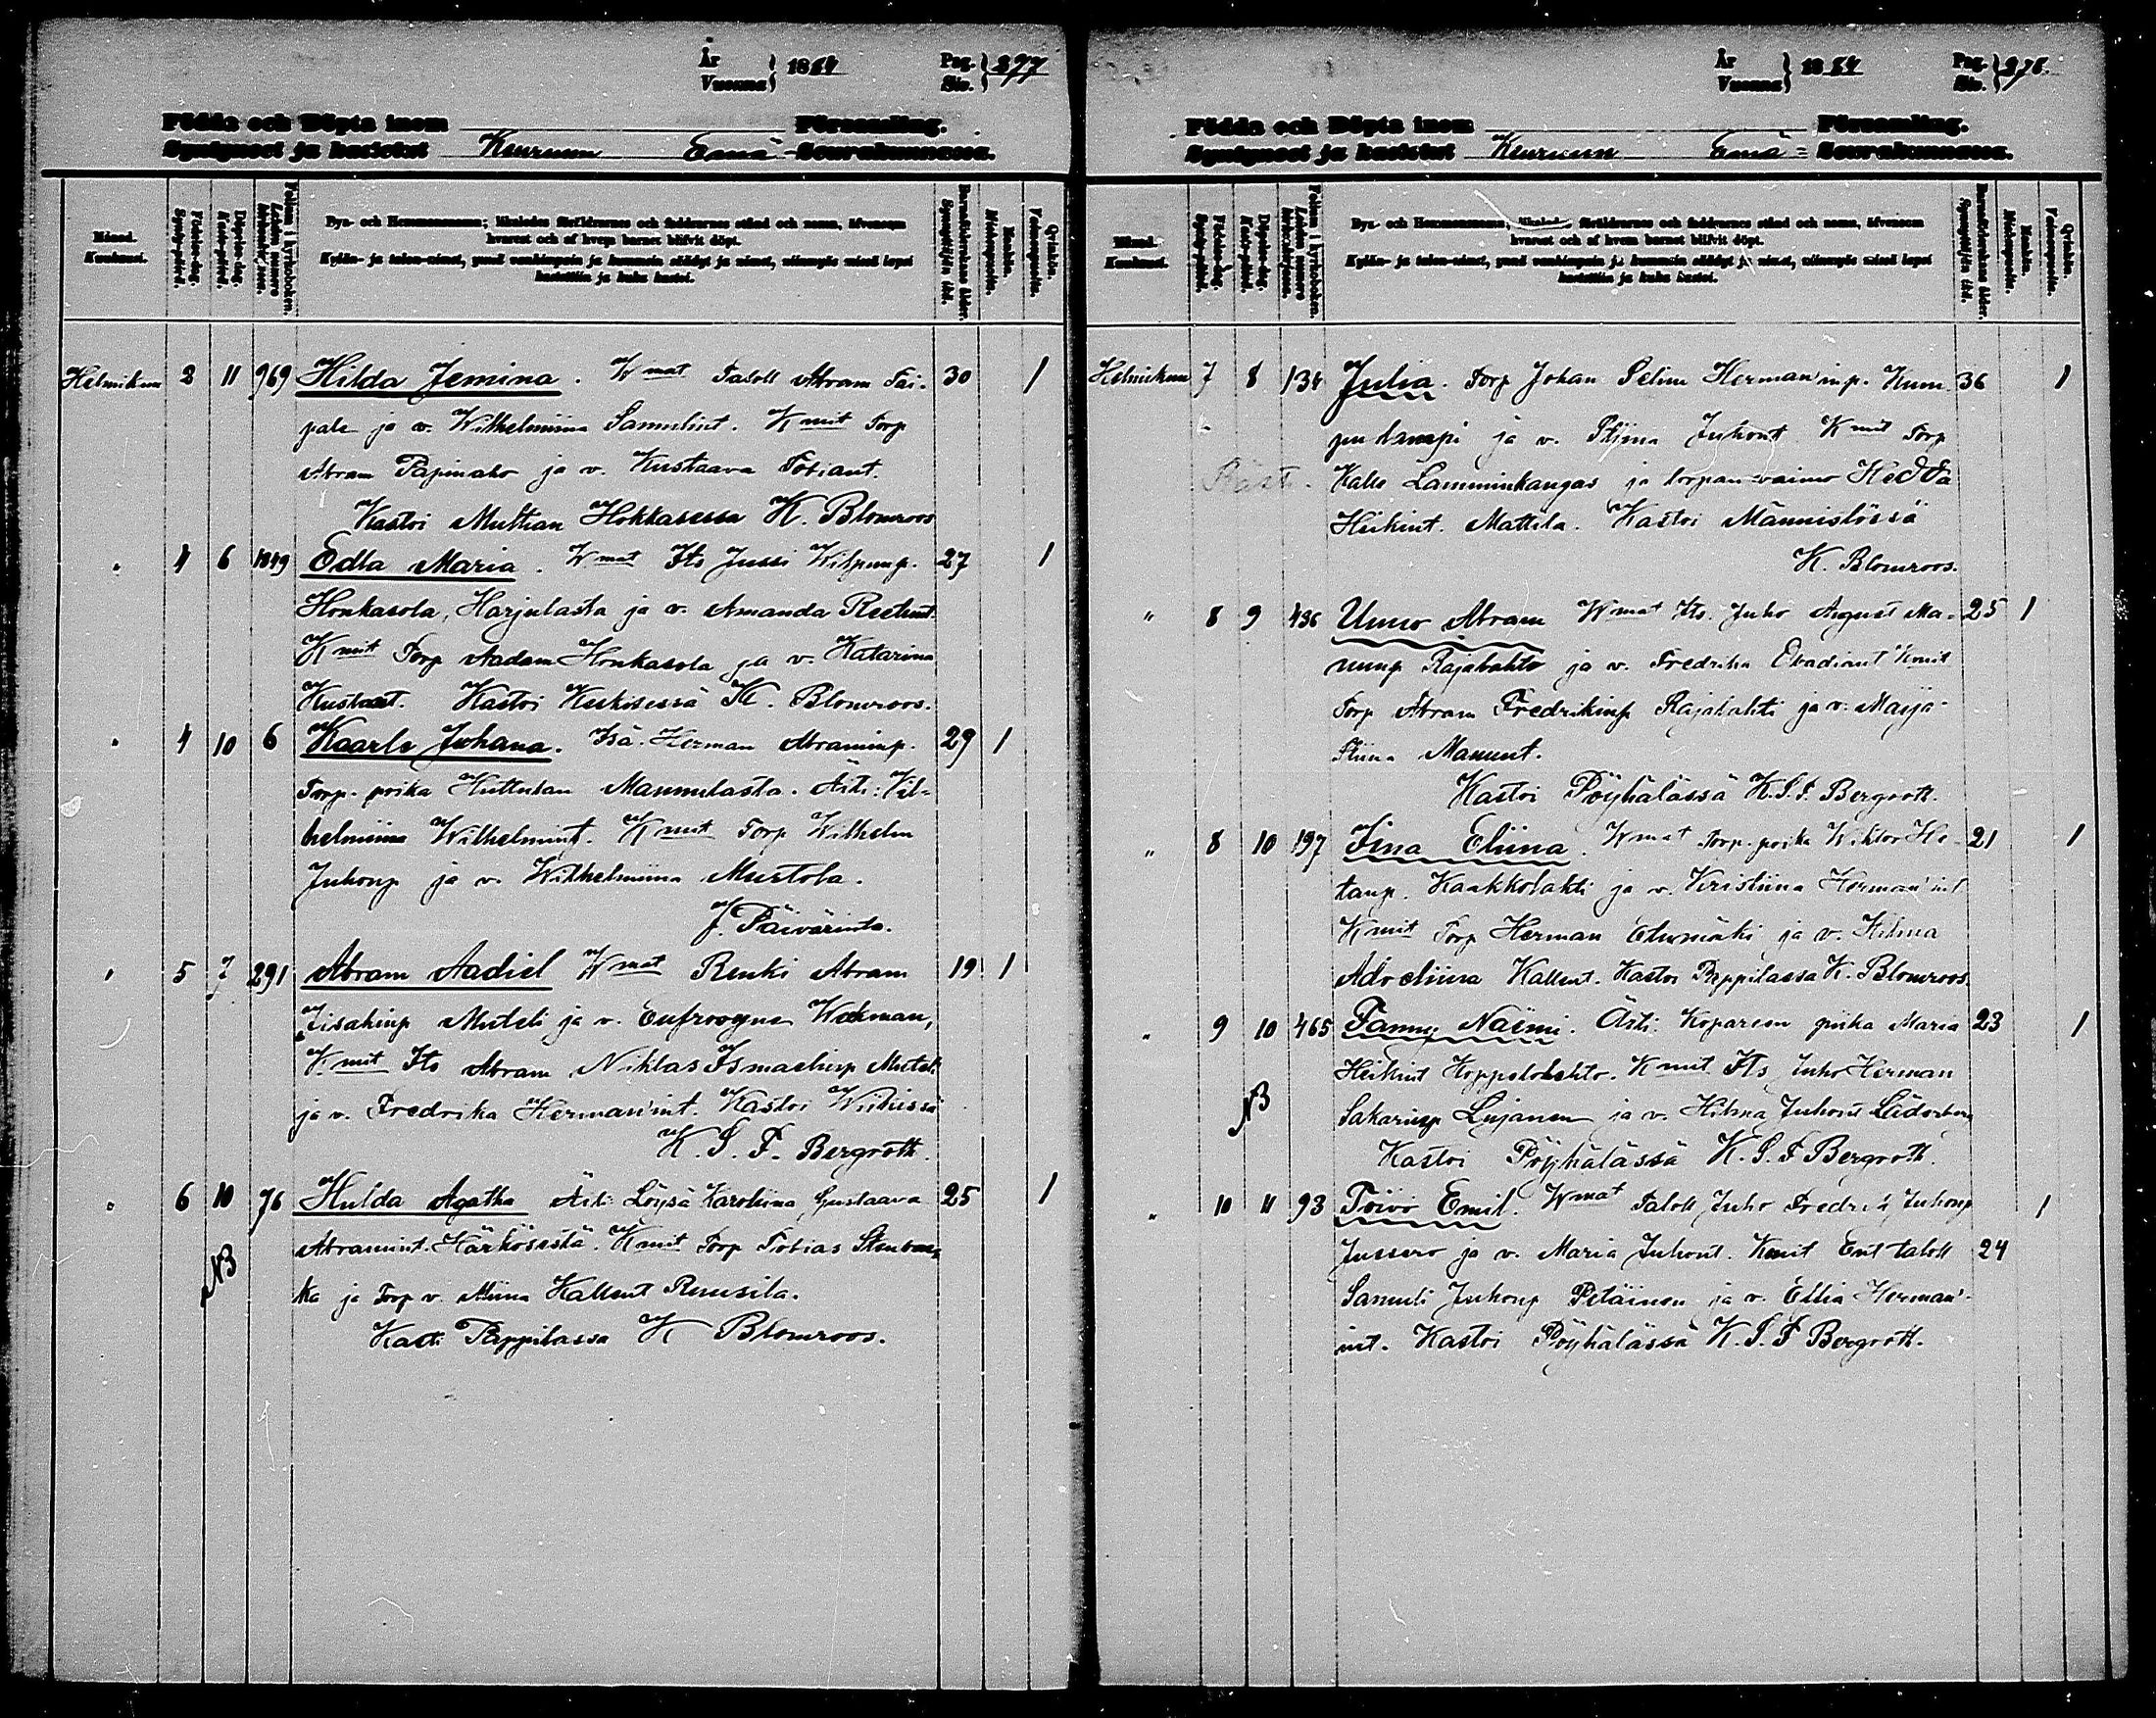 År
Vuonna } 1884 Pag.
Siv. } 377
Födda och Döpta inom Församling.
Syntyneet ja kastetut Keuruun Emä- Seurakunnassa.
Månad.
Kuukausi.
Födelse-dag.
Synty-päivä.
Döpelse-dag.
Kaste-päivä.
Folium i kyrkoboken.
Bya- och Hemmansnamn; likaledes föräldrarnes och faddrarnes stånd och namn, äfvensom
hvarest och af hvem barnet blifvit döpt.
Kylän- ja talon-nimet, ynnä vanhimpain ja kummein säädyt ja nimet, niinmyös missä lapsi
kastettiin ja kuka kastoi.
Barnaföderskans ålder.
Synnyttäjän ikä.
Mankön.
Miehenpuolta.
Qvinkön.
Vaimonpuolta.
Helmikuu 2 11 969 Hilda Jemina. Wmat Taloll Abram Tai- 30 1
pale ja v. Wilhelmiina Samulint. Kmit Torp
Abram Papinaho ja v. Kustaava Tobiant.
Kastoi Multian Hokkasessa K. Blomroos
" 4 6 1849 Edla Maria. Wmat Its Jussi Wilpunp. 27 1
Honkasola, Harjulasta ja v. Amanda
Kmit Torp Aadam Honkasola ja v. Katarina
Kustaat. Kastoi Keskisessä K. Blomroos.
" 4 10 6 Kaarlo Juhana. Isä. Herman Abraminp. 29 1
Torp. poika Huttulan Mannilasta. Äiti: Vil-
helmiina Wilhelmint. Kmit Torp Wilhelm
Juhonp ja v. Wilhelmiina Mustola.
J. Päivärinta.
" 5 7 291 Abram Aadiel Wmat Renki Abram 19 1
Iisakinp Muteli ja v. Eufrosyne Wekman,
Kmit Its Abram Niklas Ismaelinp Muteli
ja v. Fredrika Herman'int. Kastoi
K. S. F. Bergroth.
" 6 10 76 Hulda Agatha Äiti Löysä Karoliina Gustaava 25 1
Abramint. Härkösestä. Kmit Torp Tobias
NB
ka ja Torp v. Miina Kallent Ruusila.
Kast. Pappilassa K Blomroos.
År
Vuonna } 1884 Pag.
Siv. } 378.
Födda och Döpta inom Församling.
Syntyneet ja kastetut Keuruun Emä- Seurakunnassa.
Månad.
Kuukausi.
Födelse-dag.
Synty-päivä.
Döpelse-dag.
Kaste-päivä.
Folium i kyrkoboken.
Bya- och Hemmansnamn; likaledes föräldrarnes och faddrarnes stånd och namn, äfvensom
hvarest och af hvem barnet blifvit döpt.
Kylän- ja talon-nimet, ynnä vanhimpain ja kummein säädyt ja nimet, niinmyös missä lapsi
kastettiin ja kuka kastoi.
Barnaföderskans ålder.
Synnyttäjän ikä.
Mankön.
Miehenpuolta.
Qvinkön.
Vaimonpuolta.
Helmikuu 7 8 134 Julia. Torp Johan Selim Herman'inp. Kum- 36 1
punlampi ja v. Stiina Juhont Kmit Torp
Kalle Lamminkangas ja torpan vaimo Hedda
Heikint. Mattila. Kastoi Männistössä
K. Blomroos.
" 8 9 436 Uuno Abram Wmat Its. Juho August Ma- 25 1
nunp Rajalahto ja v. Fredrika Obadiant Kmit
Torp Abram Fredrikinp Rajalahti ja v. Maija-
Stiina Manunt.
Kastoi Pöyhälässä K.S.F. Bergroth.
" 8 10 197 Fina Eliina. Wmat Torp. poika Wiktor He- 21 1
tanp. Kaakkolahti ja v. Kristiina Herman'int
Kmit Torp Herman Elomäki ja v. Hilma
Adoliina Kallent. Kastoi Pappilassa K. Blomroos.
" 9 10 465 Fanny Naëmi. Äiti: Koparson piika Maria 23 1
Heikint Koppelolahto. Kmit Its Juho Herman
NB
Sakarinp Liijanen ja v. Hilma Juhont Läderberg
Kastoi Pöyhälässä K. S. F Bergroth.
" 10 11 93 Toivo Emil. Wmat Taloll Juho Fredrik Juhonp 1
Jussero ja v. Maria Juhont. Kmit Ent taloll 24
Samuli Juhonp Petäinen ja v. Ellia Herman'-
int. Kastoi Pöyhälässä K. S. F Bergroth.